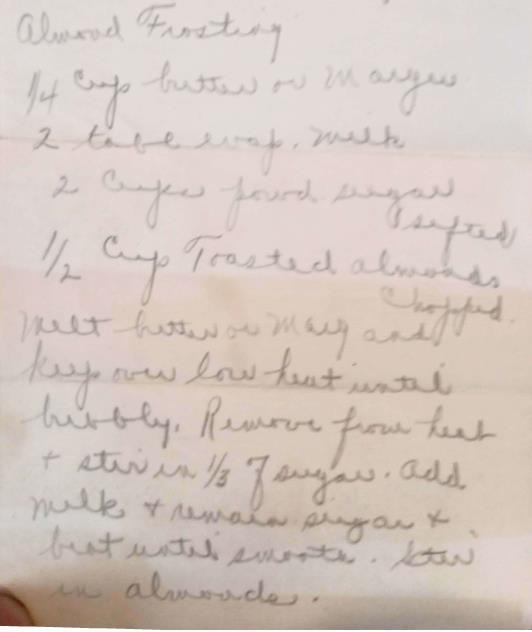 Almond Frosting
1/4 Cup butter or Margar
2 table evap. Milk
2 Cups powd sugar
sifted
1/2 Cup Toasted almonds
Chopped.
Melt butter or Marg and
keep over low heat until
bubbly. Remove from heat
+ stir in 1/3 of sugar. Add
milk + remain sugar +
beat until smooth. Stir
in almonds.